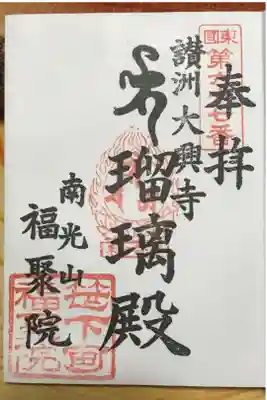 東國
第六十七番
奉拝
讃洲大興寺
瑠璃殿
南光山
福聚院